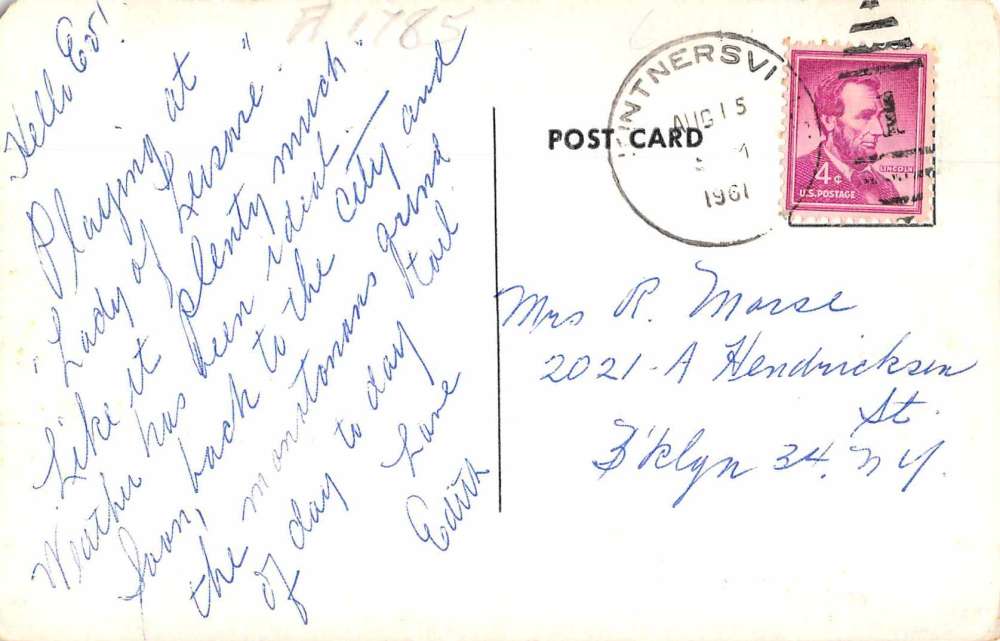 A 1785
Hello Ev!
Playing at
"Lady of Leisure"
Like it plenty much
Weather has been ideal
Soon, back to the city and
the monotonous grind
of day to day toil
Love
Edith
POST CARD
INTNERSVI
AUG 15
M
1961
4¢
LINCOLN
U.S. POSTAGE
Mrs R. Morse
2021-A Hendricksen
St.
B'klyn 34, N Y.